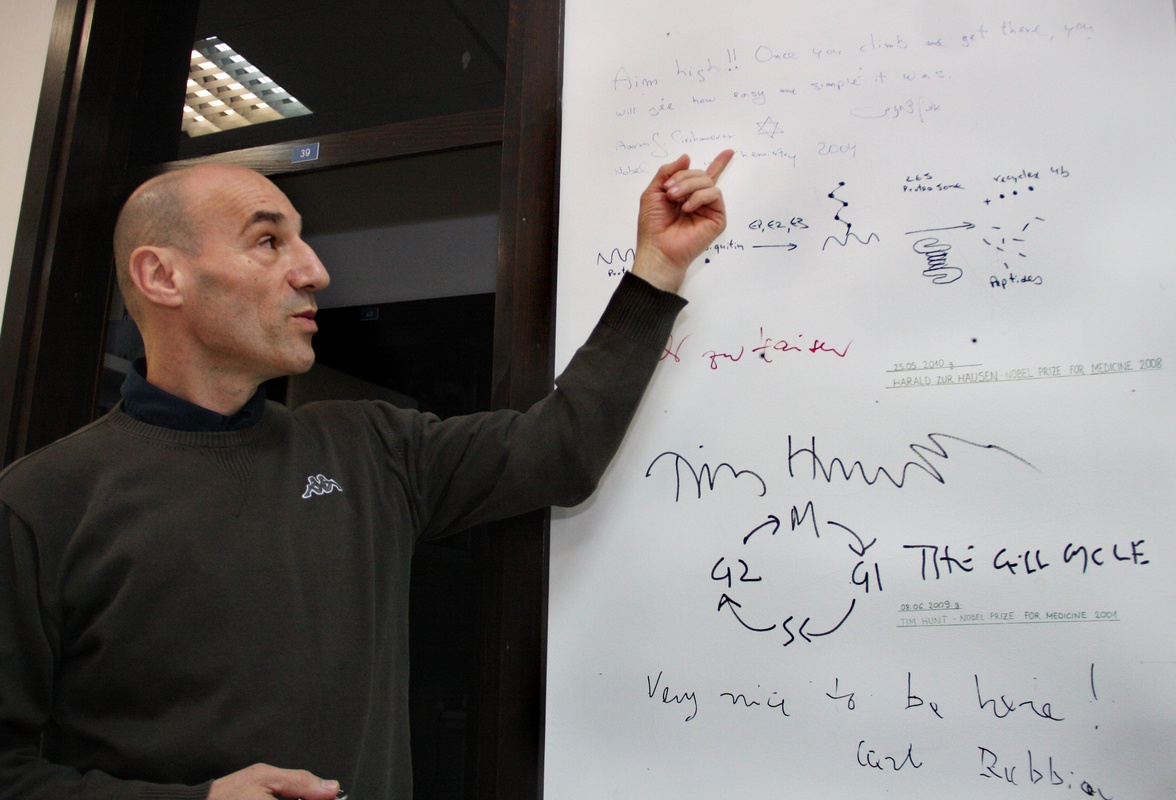 39
Aim high!! Once you climb and get there, you
will see how easy and simple it was.
Aaron Ciechanover
Nobel in chemistry 2004
E1, E2, E3
26S
Proteasome
recycled Ub
+
Peptides
zur Hausen
25.05.2010 g
HARALD ZUR HAUSEN - NOBEL PRIZE FOR MEDICINE 2008
Tim Hunt
M
G2
G1
S
THE CELL CYCLE
08.06.2009 g
TIM HUNT - NOBEL PRIZE FOR MEDICINE 2001
Very nice to be here!
Carl Rubbia